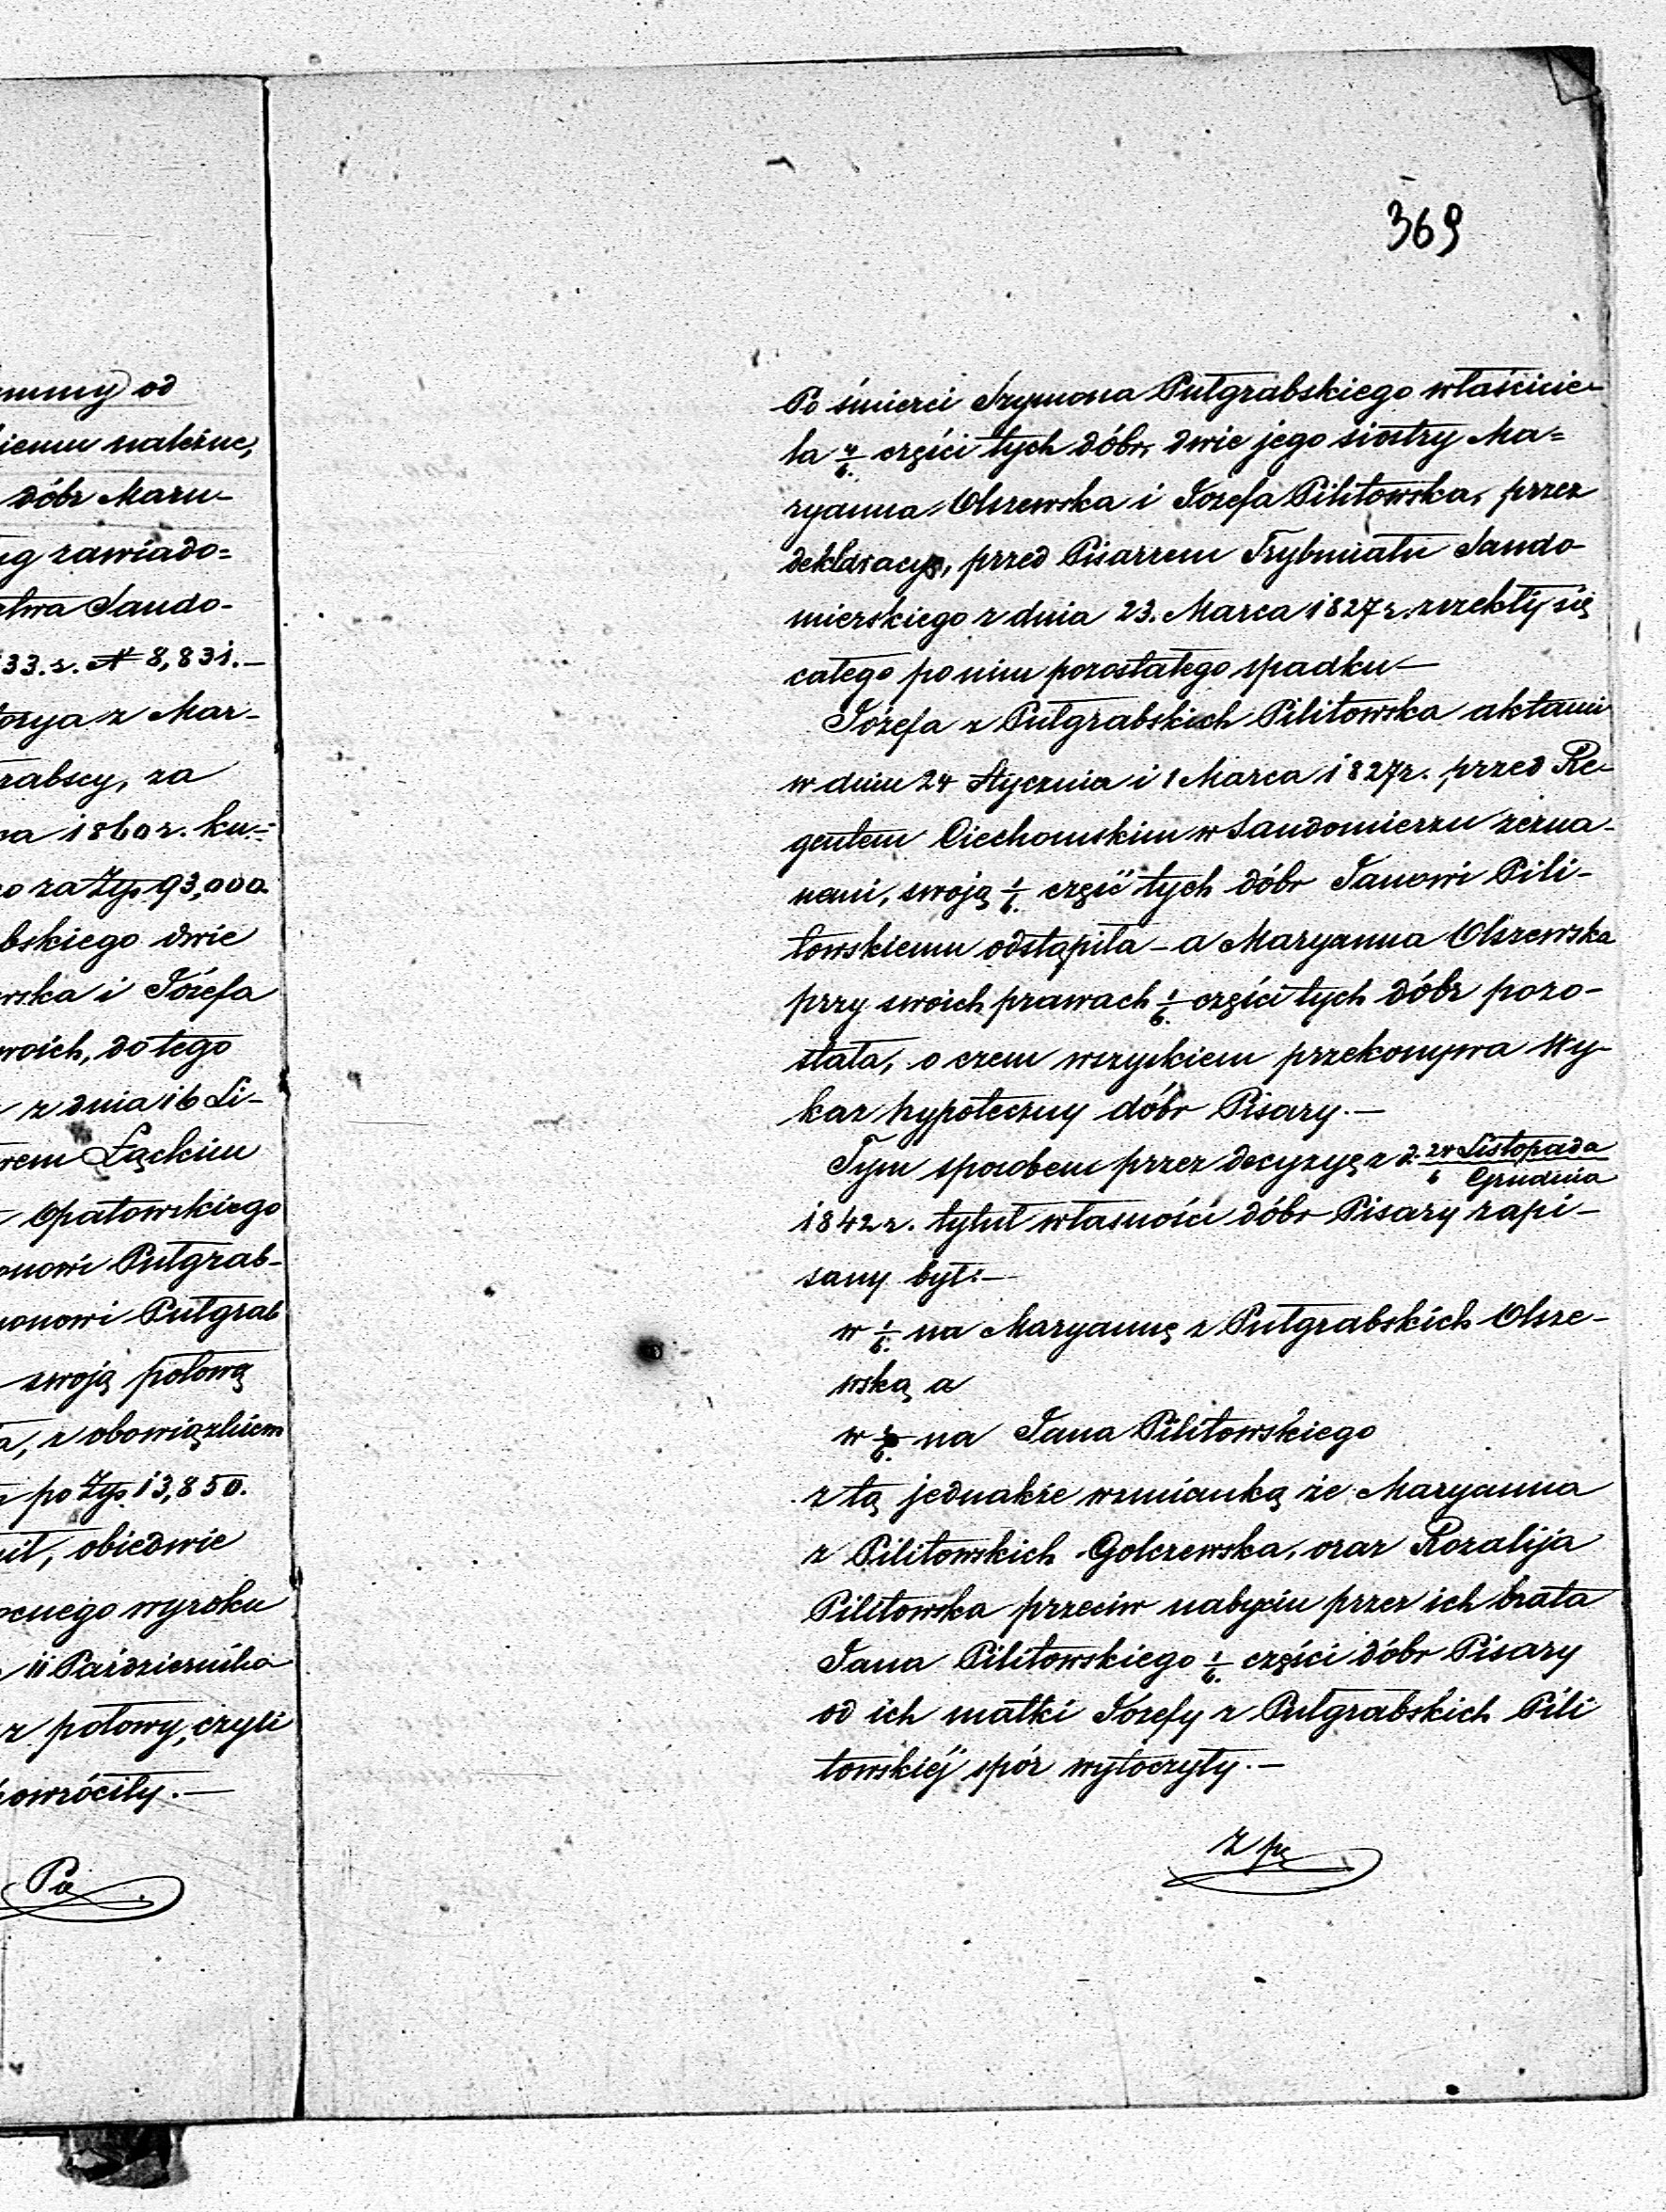 369
mmy) od
iemu należne,
dóbr Maru-
ug zawiado=
stwa Sando-
33. r. N 8,831.—
torya z Mar-
rabscy, za
ca 1860 r. ku-
o za Złp. 93,000.
bskiego dwie
wska i Józefa
woich, do tego
z dnia 16 Li-
rem Łąckim
Opatowskiego
onowi Pułgrab-
monowi Pułgrab
swoją połowę
a, z obowiązkiem
po Złp. 13,850.
ił, obiedwie
ocnego wyroku
11 Października
z połowy, czyli
powróciły.—
Po
Po śmierci Szymona Pułgrabskiego właścicie-
la 4/6. części tych dóbr, dwie jego siostry Ma=
ryanna Olszewska i Józefa Pilitowska, przez
deklaracyę, przed Pisarzem Trybunału Sando-
mierskiego z dnia 23. Marca 1827 r. zrzekły się
całego po nim pozostałego spadku—
Józefa z Pułgrabskich Pilitowska aktami
w dniu 24 Stycznia i 1 Marca 1827 r. przed Re-
gentem Ciechomskim w Sandomierzu zezna-
nemi, swoją 1/6. część tych dóbr Janowi Pili-
towskiemu odstąpiła – a Maryanna Olszewska
przy swoich prawach 1/6. części tych dóbr pozo-
stała, o czem wszystkiem przekonywa Wy-
kaz hypoteczny dóbr Pisary.—
Tym sposobem przez decyzyę z d. 24 Listopada
6 Grudnia
1842 r. tytuł własności dóbr Pisary zapi-
sany był:—
w 1/6. na Maryannę z Pułgrabskich Olsze-
wską a
w na Jana Pilitowskiego
z tą jednakże wzmianką że Maryanna
z Pilitowskich Golczewska, oraz Rozalija
Pilitowska przeciw nabyciu przez ich brata
Jana Pilitowskiego 1/6. części dóbr Pisary
od ich matki Józefy z Pułgrabskich Pili
towskiéj spór wytoczyły.—